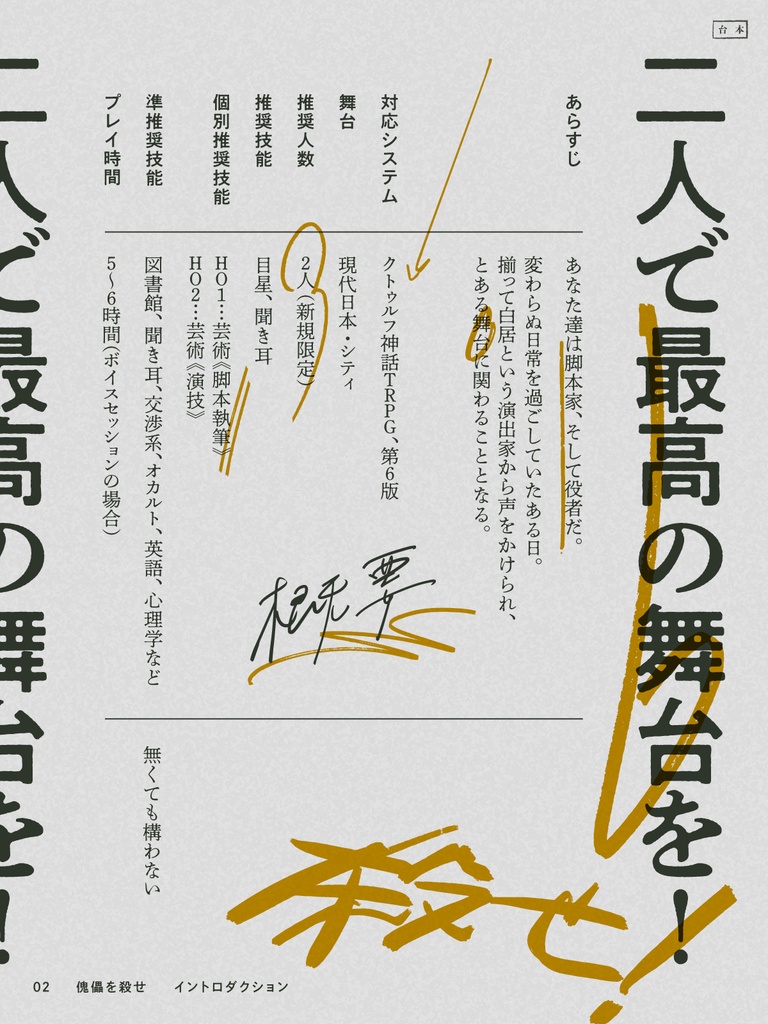 台本
二人で最高の舞台を！
あらすじ
あなた達は脚本家、そして役者だ。
変わらぬ日常を過ごしていたある日。
揃って白居という演出家から声をかけられ、
とある舞台に関わることとなる。
対応システム
クトゥルフ神話TRPG、第6版
舞台
現代日本・シティ
推奨人数
2人（新規限定）
推奨技能
目星、聞き耳
個別推奨技能
HO1…芸術《脚本執筆》
HO2…芸術《演技》
準推奨技能
図書館、聞き耳、交渉系、オカルト、英語、心理学など
無くても構わない
プレイ時間
5〜6時間（ボイスセッションの場合）
殺せ！
二人で最高の舞台を！
02 傀儡を殺せ イントロダクション